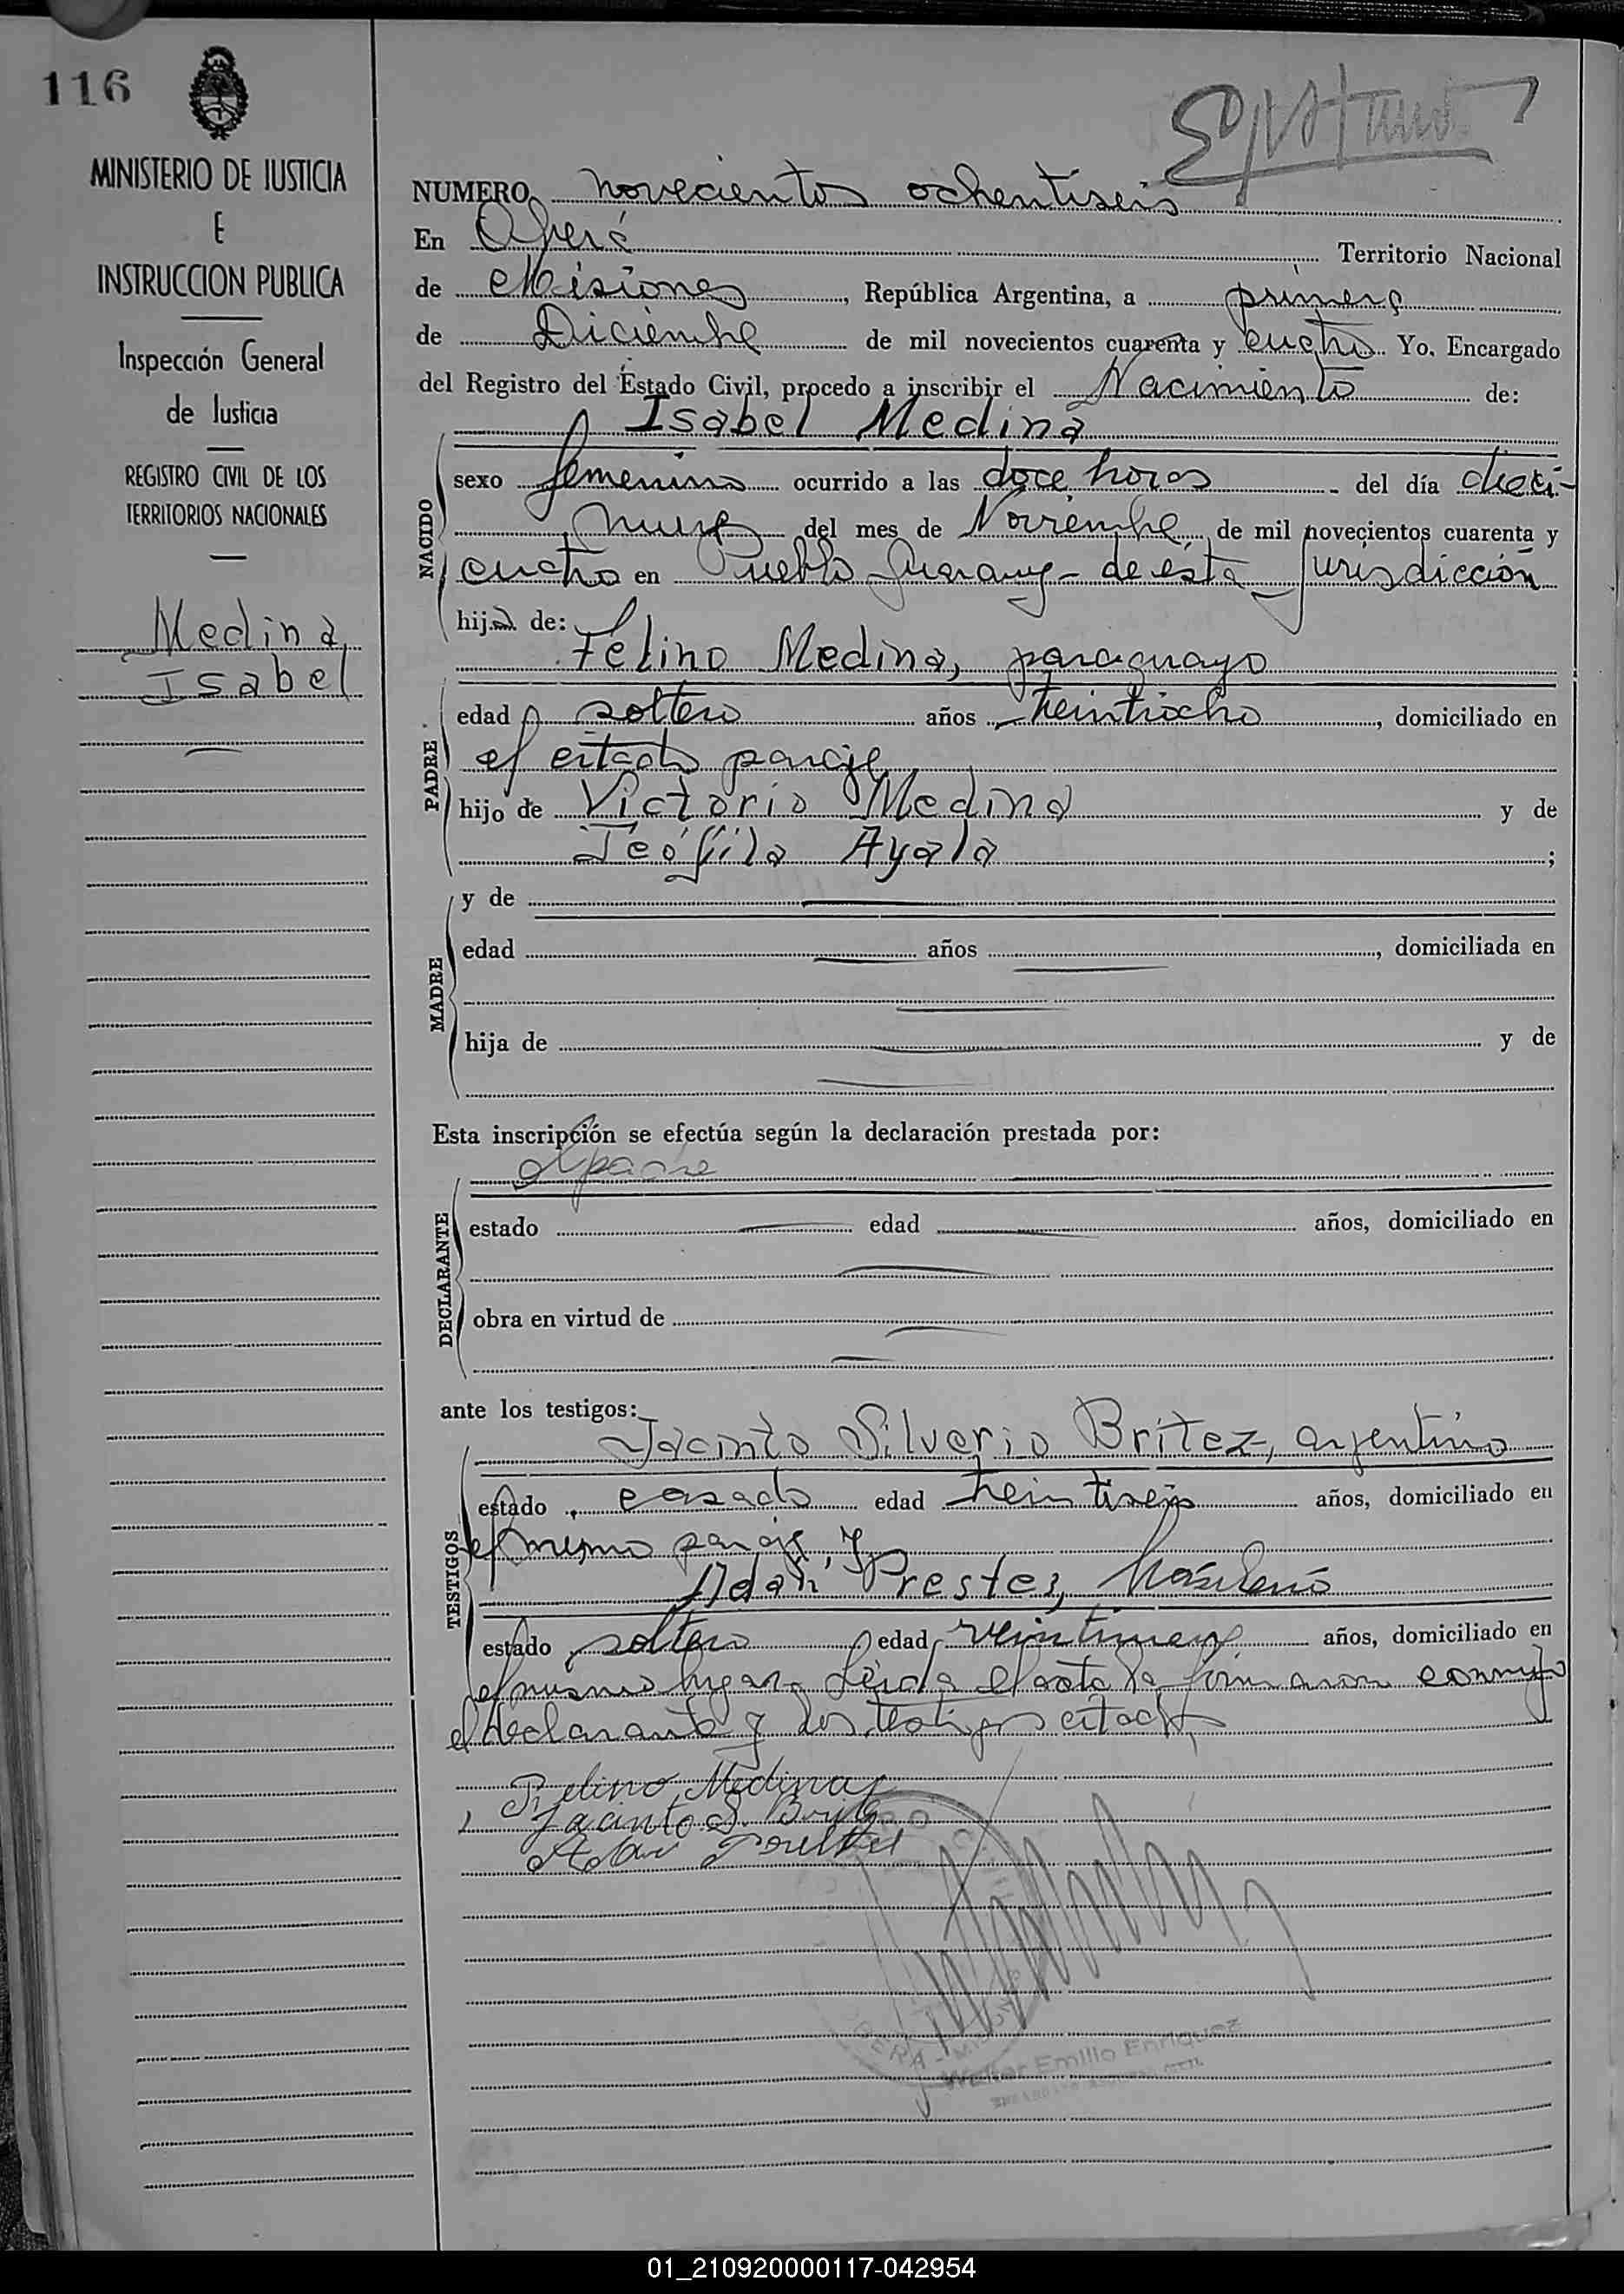 116
MINISTERIO DE JUSTICIA
E
INSTRUCCION PUBLICA
Inspección General
de Justicia
REGISTRO CIVIL DE LOS
TERRITORIOS NACIONALES
Medina
Isabel
NUMERO novecientos ochentiseis
En Oberá Territorio Nacional
de Misiones, República Argentina, a primero
de Diciembre de mil novecientos cuarenta y ocho Yo, Encargado
del Registro del Estado Civil, procedo a inscribir el Nacimiento de:
Isabel Medina
NACIDO
sexo femenino ocurrido a las doce horas del día dieci-
nueve del mes de Noviembre de mil novecientos cuarenta y
ocho en Pueblo Guarany - de esta jurisdicción
hija de:
Felino Medina, paraguayo
PADRE
edad soltero años treintiocho, domiciliado en
el citado paraje
hijo de Victorio Medina y de
Teófila Ayala ;
MADRE
y de
edad años , domiciliada en
hija de y de
Esta inscripción se efectúa según la declaración prestada por:
el padre
DECLARANTE
estado edad años, domiciliado en
obra en virtud de
ante los testigos:
Jacinto Silverio Britez, argentino
TESTIGOS
estado casado edad treintiseis años, domiciliado en
el mismo paraje y
Adan Prestes, brasileño
estado soltero edad veintinueve años, domiciliado en
el mismo lugar. Leida el acta la firmaron conmigo
el declarante y los testigos citados
Felino Medina
Jacinto S. Britez
Adan Prestes
OBERA
Walter Emilio Enriquez
01_210920000117-042954